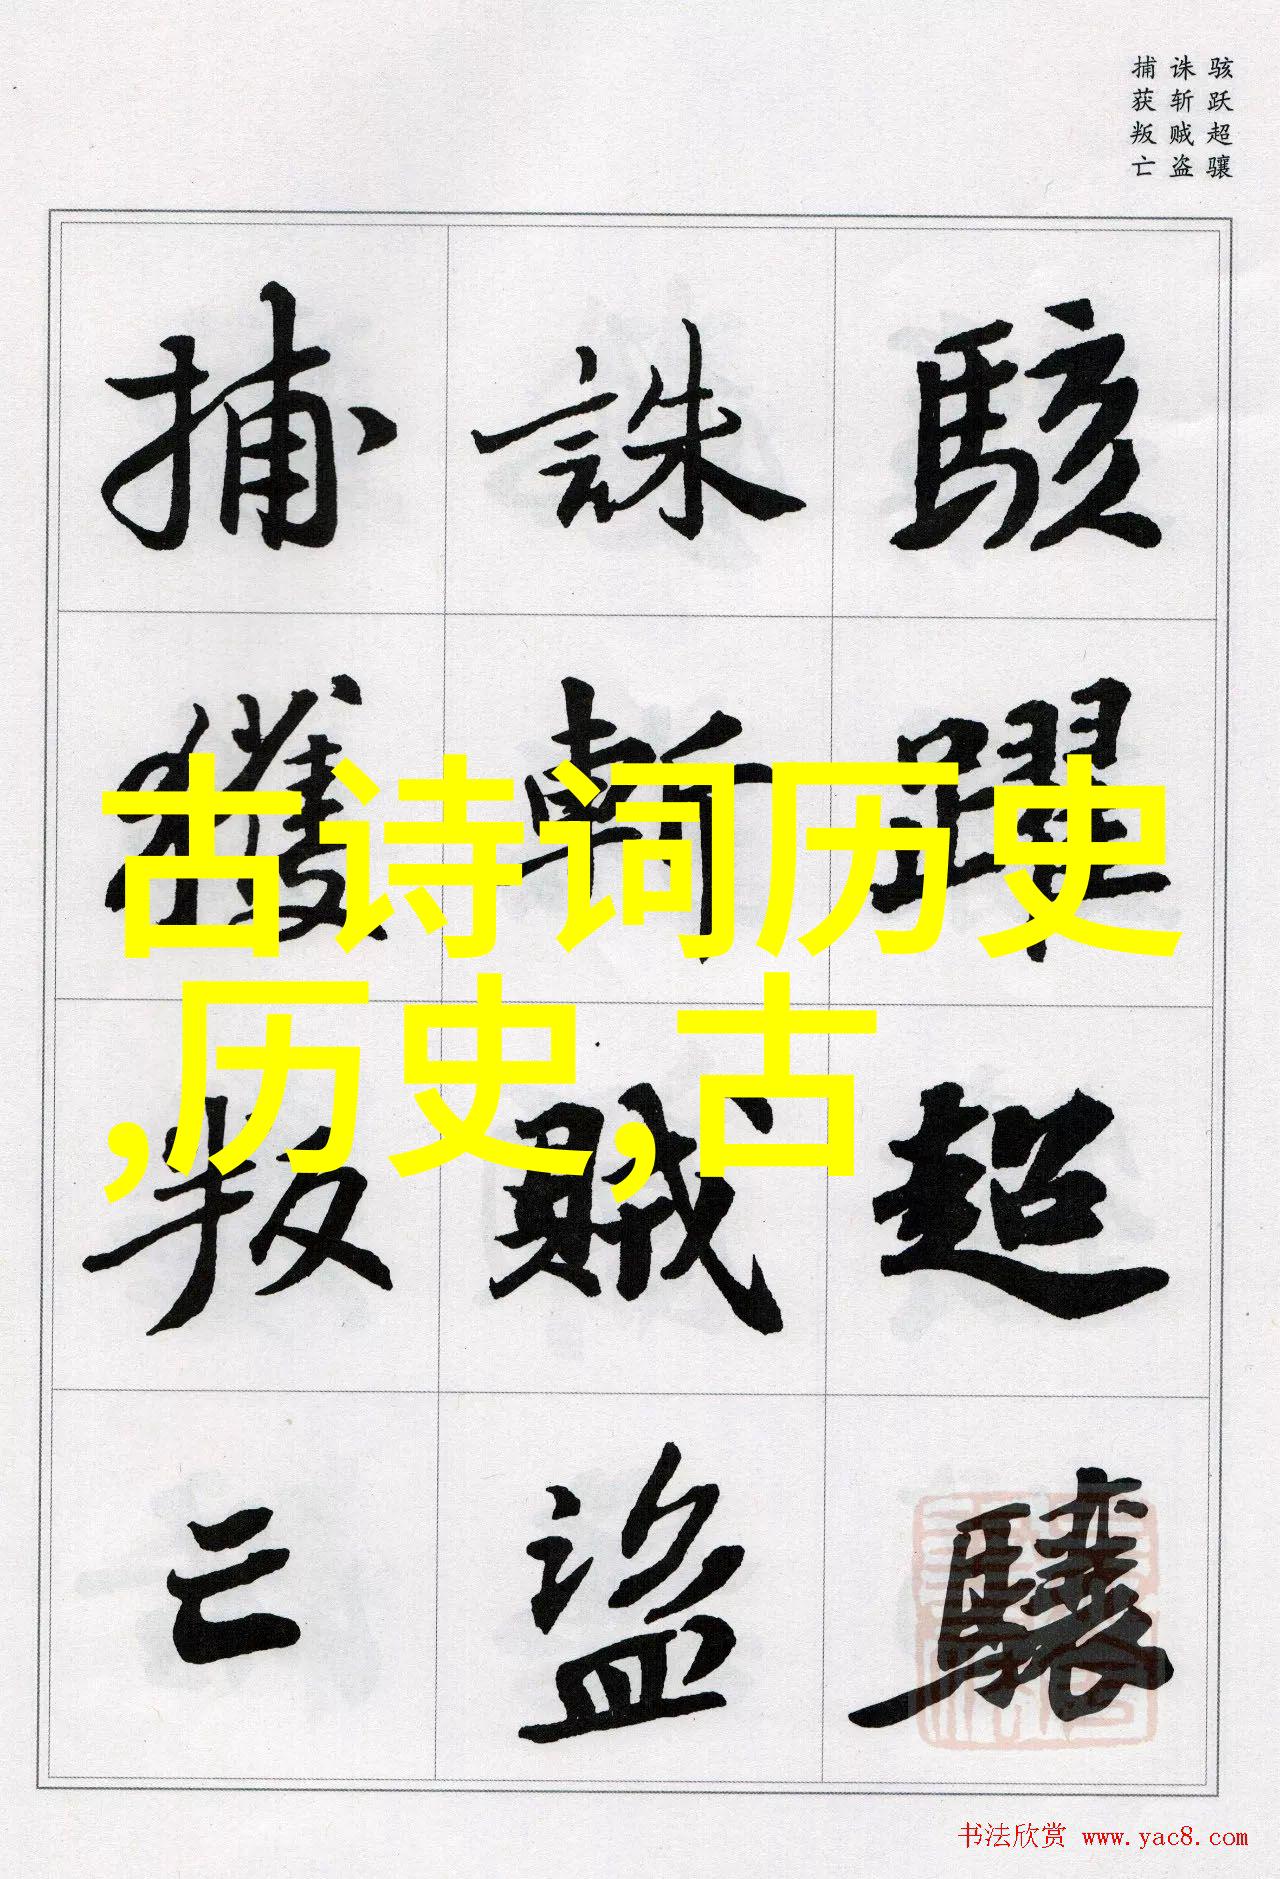 骇跃超骧
诛斩贼盗
捕获叛亡
駭躍超驤
誅斬賊盜
捕獲叛亡
古诗词历史
,历史,古
书法欣赏 www.yac8.com